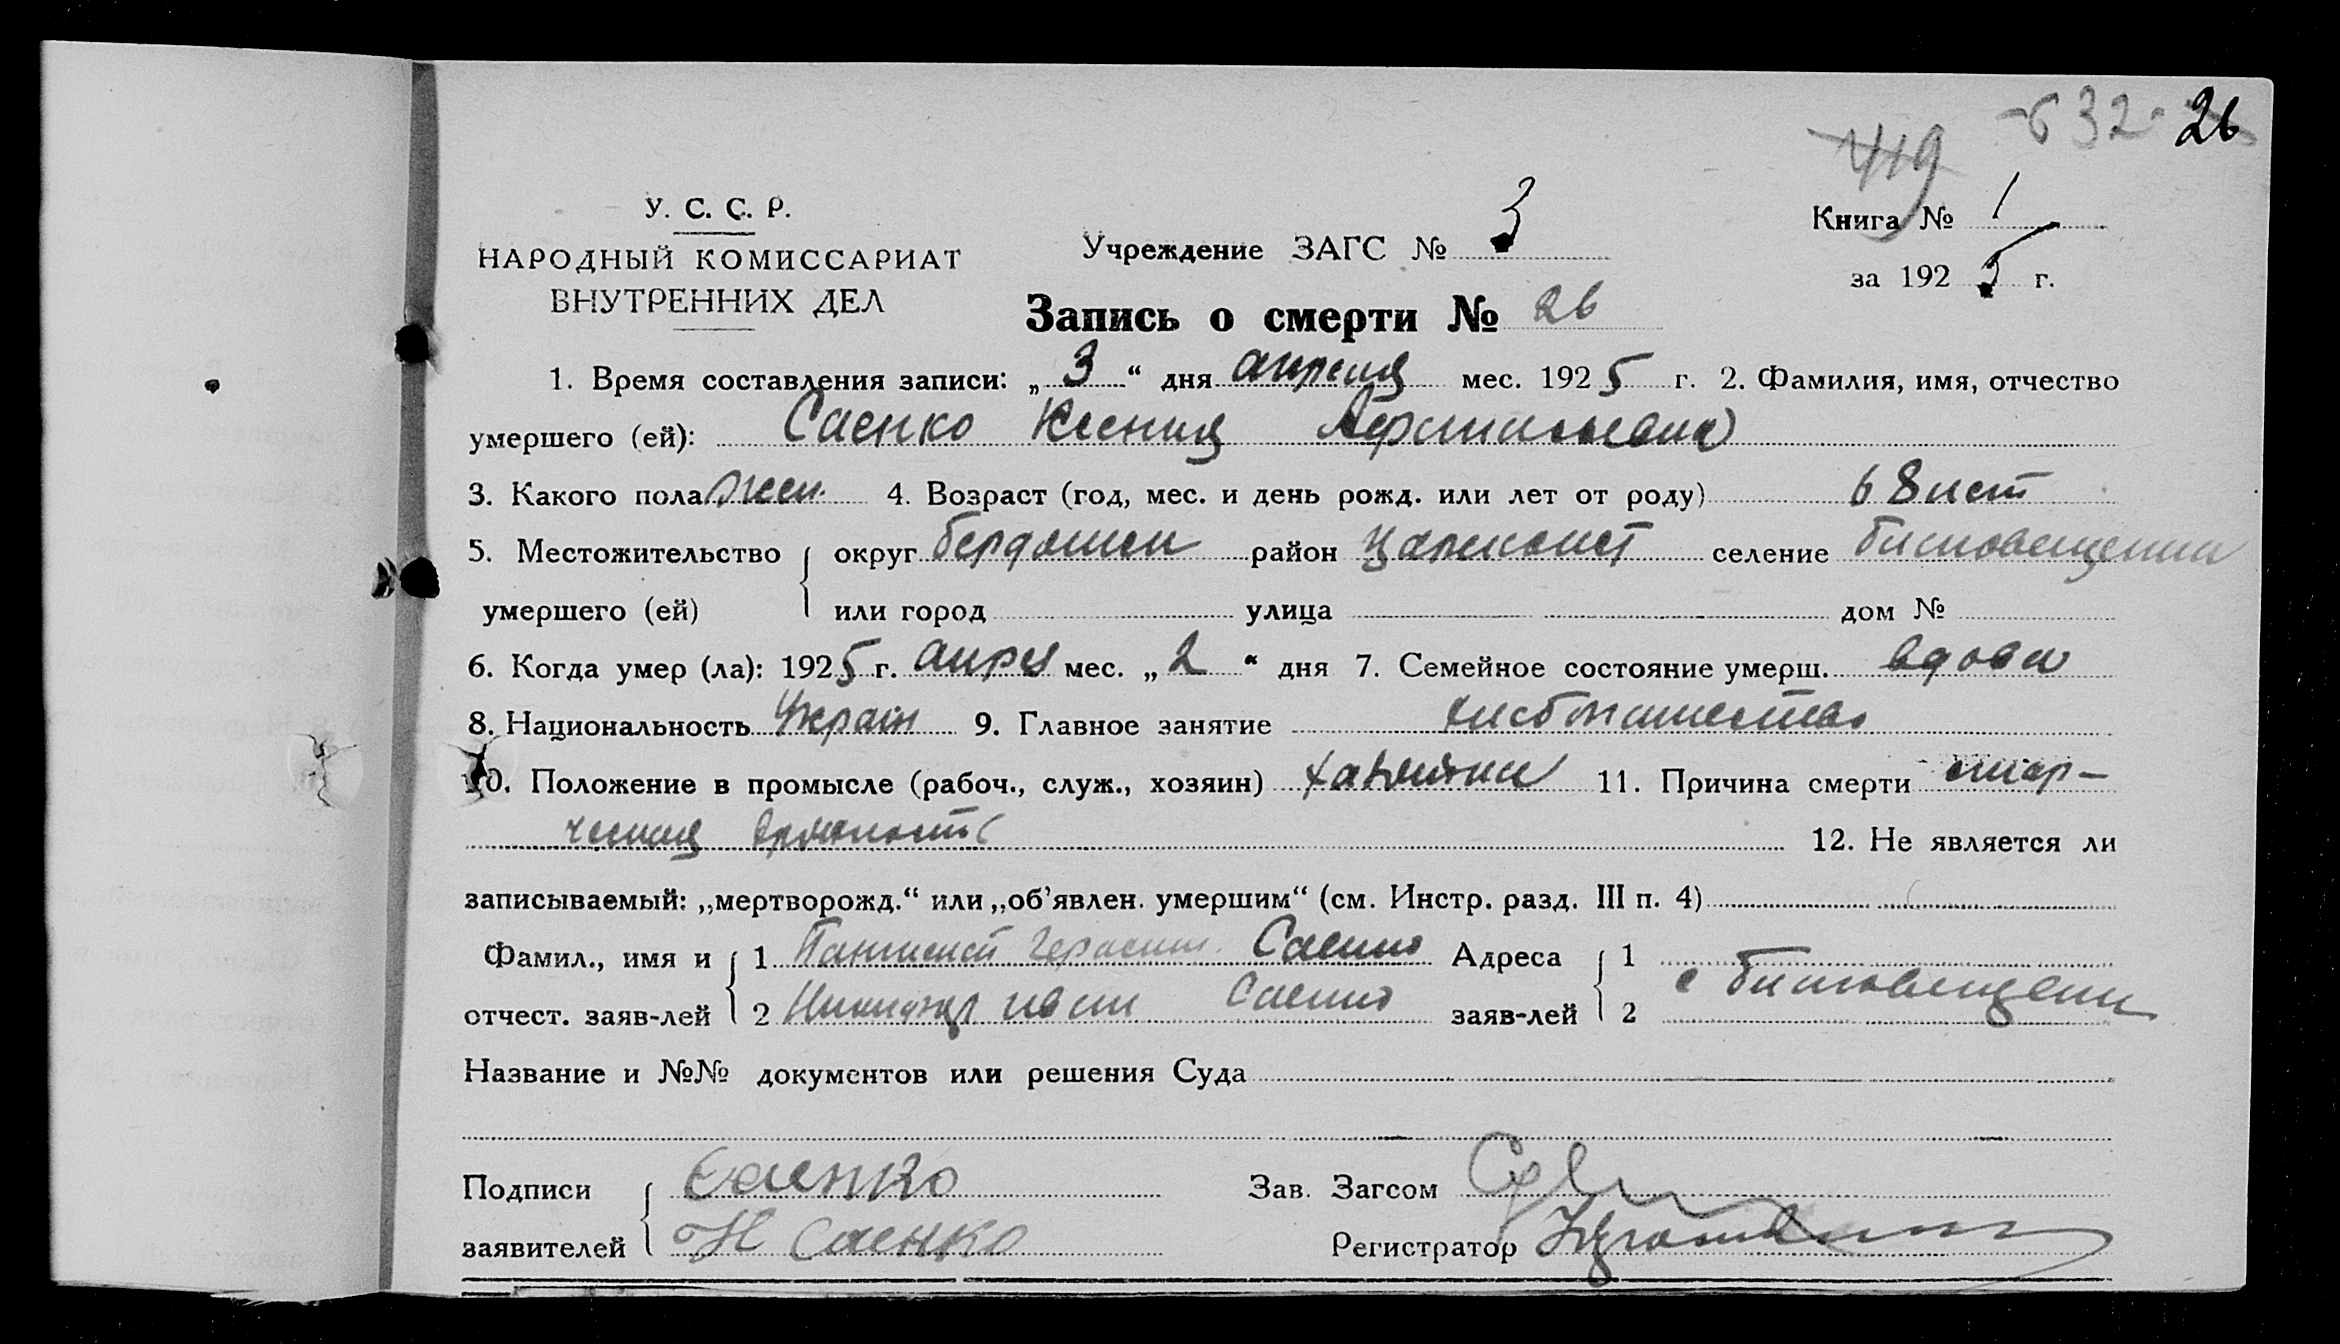 419 632 26
У. С. С. Р.
НАРОДНЫЙ КОМИССАРИАТ
ВНУТРЕННИХ ДЕЛ
Учреждение ЗАГС № 3
Книга № 1
за 1925 г.
Запись о смерти № 26
1. Время составления записи: „ 3 “ дня апреля мес. 1925 г. 2. Фамилия, имя, отчество
умершего (ей): Саенко Ксения
3. Какого пола жен. 4. Возраст (год, мес. и день рожд. или лет от роду) 68 лет
5. Местожительство округ бердянск район Цареконст селение благовещенка
умершего (ей) или город улица дом №
6. Когда умер (ла): 1925 г. апрел мес. „ 2 “ дня 7. Семейное состояние умерш. вдова
8. Национальность Украін 9. Главное занятие хлебопашество
10. Положение в промысле (рабоч., служ., хозяин) хозяйка 11. Причина смерти стар-
ческая дряхлость 12. Не является ли
записываемый: „мертворожд.“ или „об'явлен. умершим“ (см. Инстр. разд. III п. 4)
Фамил., имя и 1 Пантилей Герасим. Саенко Адреса 1
отчест. заяв-лей 2 Никифор Саенко заяв-лей 2 с благовещенк
Название и №№ документов или решения Суда
Подписи Саенко Зав. Загсом
заявителей Н Саенко Регистратор